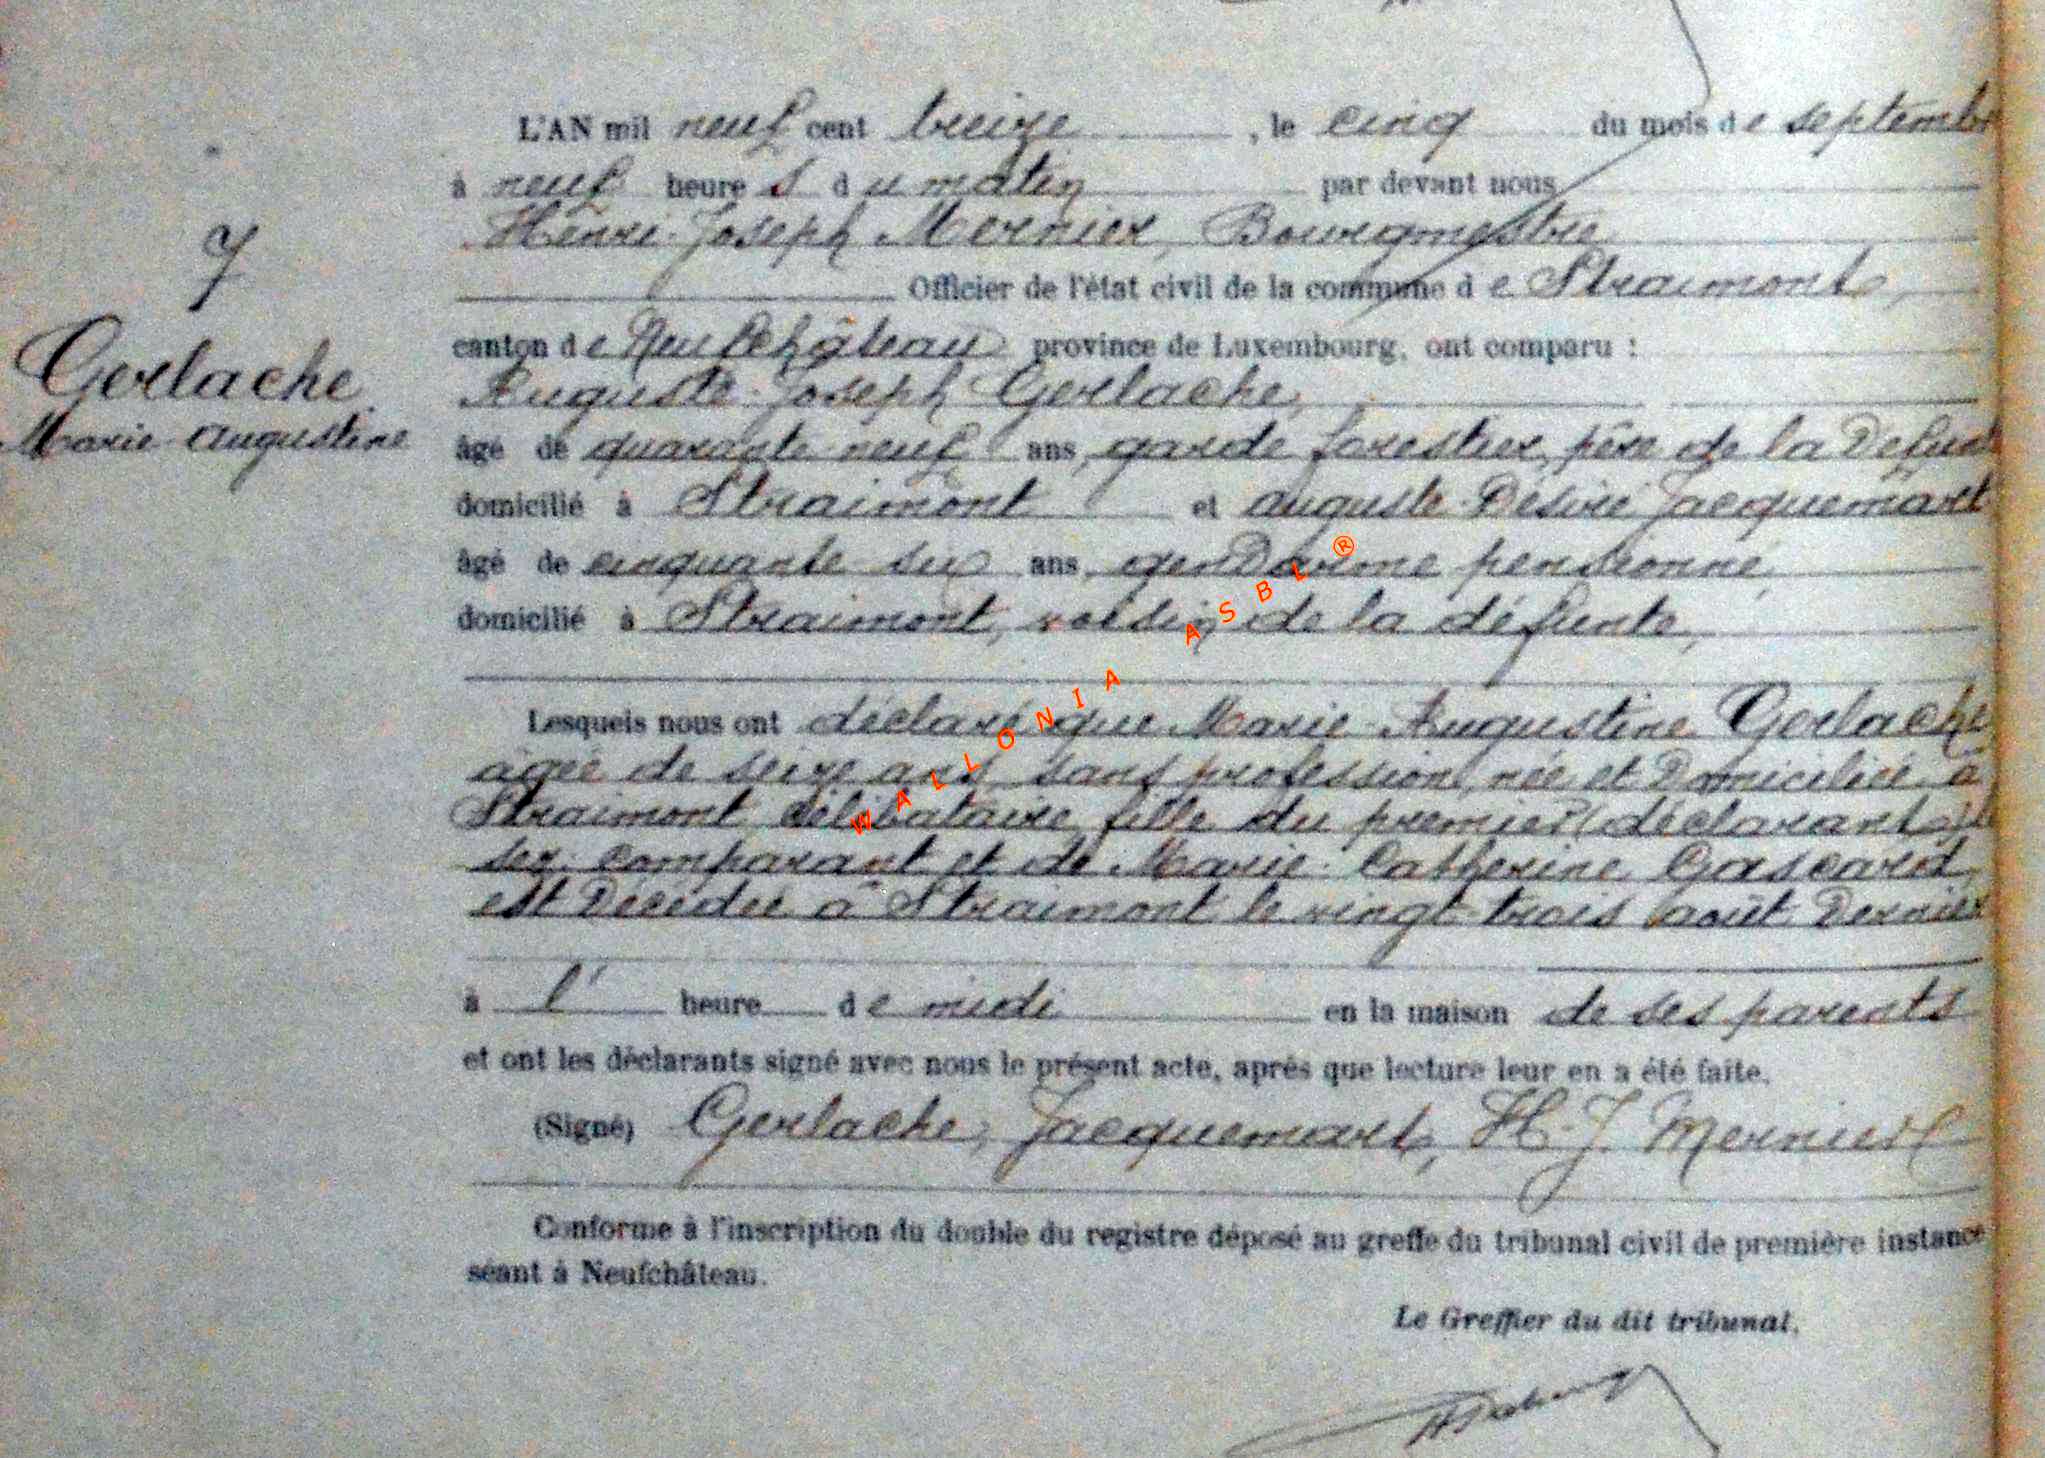 L'AN mil neuf cent treize, le cinq du mois de septembre
à neuf heures du matin par devant nous
Henri-Joseph Mernier, Bourgmestre
Officier de l'état civil de la commune de Straimont,
7
canton de Neufchâteau province de Luxembourg, ont comparu :
Gerlache
Auguste-Joseph Gerlache,
Marie-Augustine
âgé de quarante-neuf ans, garde forestier, père de la Défunt
domicilié à Straimont et Auguste-Désiré Jacquemart
âgé de cinquante six ans, genDarme pensionné,
domicilié à Straimont, voisin de la défunte,
Lesquels nous ont déclaré que Marie-Augustine Gerlache
agée de seize ans, sans profession, née et Domiciliée à
Straimont, célibataire, fille du premier (déclarant)
comparant et de Marie-Catherine Gascard,
est Décédée à Straimont le vingt-trois août Dernier
à l' heure de midi en la maison de ses parents
et ont les déclarants signé avec nous le présent acte, après que lecture leur en a été faite.
(Signé) Gerlache, Jacquemart, H-J. Mernier
Conforme à l'inscription du double du registre déposé au greffe du tribunal civil de première instance
séant à Neufchâteau.
Le Greffier du dit tribunal,
WALLONIA ASBL ®